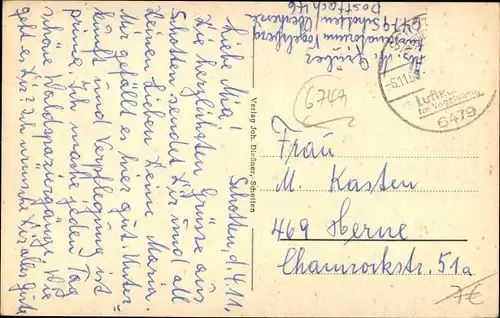 Schotten, d. 4.11.
Liebe Mia!
Die herzlichsten Grüsse aus
Schotten sendet Dir und all
Deinen Lieben Deine Maria.
Mir gefällt es hier gut. Unter-
kunft und Verpflegung ist
prima. Ich mache jeden Tag
schöne Waldspaziergänge. Wie
geht es Dir? Ich wünsche Dir alles Gute
Verlag Joh. Dießner, Schotten
Abs. M. Grüber
Sanatorium Vogelsberg
6479 Schotten/Oberhessen
Postfach 46
6744
-6.11.
Luftk
Im Vogelsberg
6479
Frau
M. Kasten
469 Herne
Chamrockstr. 51a
7€